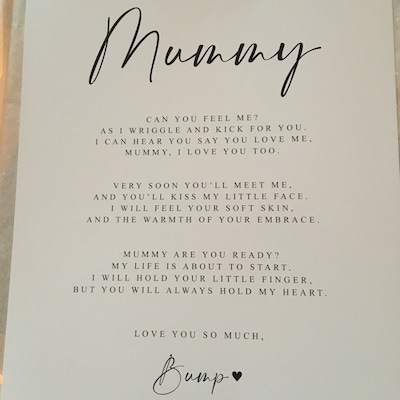 Mummy
CAN YOU FEEL ME?
AS I WRIGGLE AND KICK FOR YOU.
I CAN HEAR YOU SAY YOU LOVE ME,
MUMMY, I LOVE YOU TOO.
VERY SOON YOU'LL MEET ME,
AND YOU'LL KISS MY LITTLE FACE.
I WILL FEEL YOUR SOFT SKIN,
AND THE WARMTH OF YOUR EMBRACE.
MUMMY ARE YOU READY?
MY LIFE IS ABOUT TO START.
I WILL HOLD YOUR LITTLE FINGER,
BUT YOU WILL ALWAYS HOLD MY HEART.
LOVE YOU SO MUCH,
Bump ♥